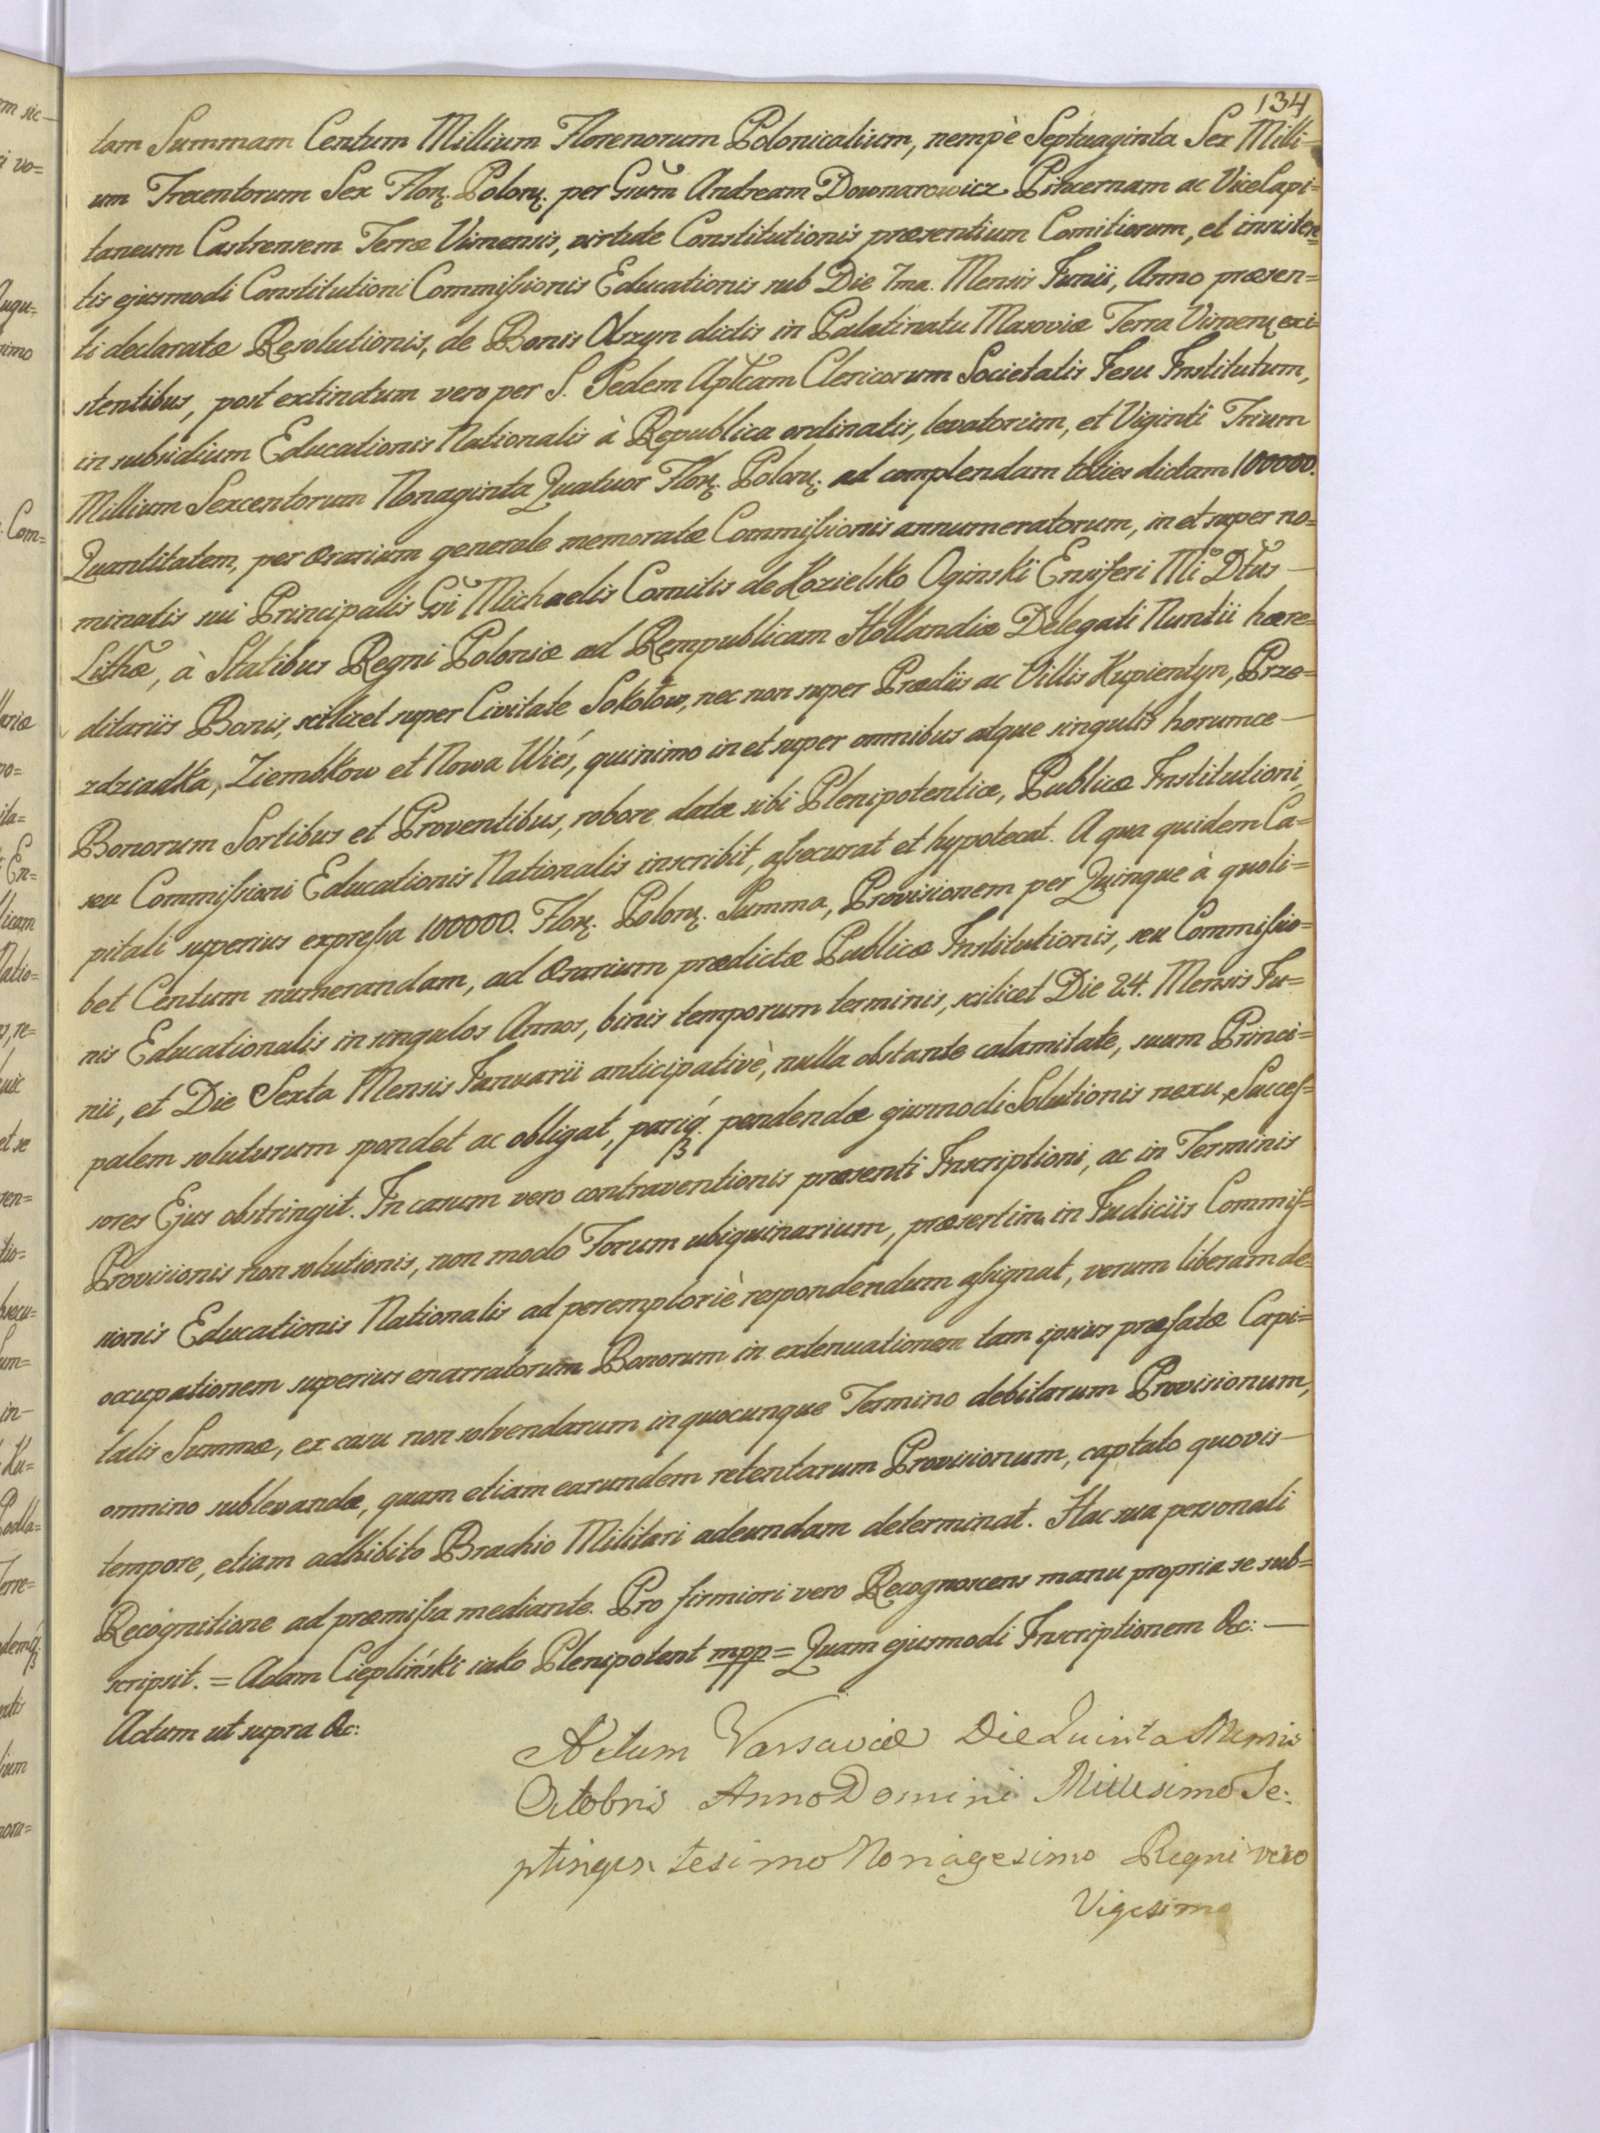 134
tam Summam Centum Millium Florenorum Polonicalium, nempè Septuaginta Sex Milli-
um Trecentorum Sex Flor. Polon. per Gnum Andream Downarowicz Pincernam ac ViceCapi=
taneum Castrensem Terræ Visnensis, virtute Constitutionis præsentium Comitiorum, et insisten=
tis ejusmodi Constitutioni Commissionis Educationis sub Die 7ma. Mensis Junii, Anno præsen=
ti declaratæ Resolutionis, de Bonis in Palatinatu Masoviæ Terra exi-
stentibus, post extinctum vero per S. Sedem Aplcam Clericorum Societatis Jesu Institutum,
in subsidium Educationis Nationalis à Republica ordinatis, levatorum, et Viginti Trium
Millium Sexcentorum Nonaginta Quatuor Flor. Polon. ad complendam toties dictam 100000.
Quantitatem, per ærarium generale memoratæ Commissionis annumeratorum, in et super no=
minatis sui Principalis Gsi Michaelis Comitis de Kozielsko Oginski Ensiferi Mi Dtus
Lithæ, à Statibus Regni Poloniæ ad Rempublicam Hollandiæ Delegati Nuntii hære=
ditariis Bonis, scilicet super Civitate Sokołow, nec non super Prædiis ac Villis Kupientyn, Prze=
zdziadka, Ziembkow et Nowa Wieś, quinimo in et super omnibus atque singulis horumce
Bonorum Sortibus et Proventibus, robore datæ sibi Plenipotentiæ, Publicæ Institutioni,
seu Commissioni Educationis Nationalis inscribit, assecurat et hypotecat. A qua quidem Ca=
pitali superius expressa 100000. Flor. Polon. Summa, Provisionem per Quinque à quoli=
bet Centum numerandam, ad ærarium prædictæ Publicæ Institutionis, seu Commissio=
nis Educationalis in singulos Annos, binis temporum terminis, scilicet Die 24. Mensis Ju=
nii, et Die Sexta Mensis Januarii anticipativè, nulla obstante calamitate, suum Princi=
palem soluturum spondet ac obligat, pariq. pendendæ ejusmodi Solutionis nexu, Succes=
sores Ejus obstringit. In casum vero contraventionis præsenti Inscriptioni, ac in Terminis
Provisionis non solutionis, non modo Forum ubiquinarium, præsertim in Judiciis Commis=
sionis Educationis Nationalis ad peremptoriè respondendum assignat, verum liberam de=
occupationem superius enarratorum Bonorum in extenuationem tam ipsius præfatæ Capi=
talis Summæ, ex casu non solvendarum in quocunque Termino debitarum Provisionum,
omnino sublevandæ, quam etiam earundem retentarum Provisionum, captato quovis
tempore, etiam adhibito Brachio Militari adeundam determinat. Hac sua personali
Recognitione ad præmissa mediante. Pro firmiori vero Recognoscens manu propria se sub=
scripsit. = Adam Ciepliński iako Plenipotent mpp = Quam ejusmodi Inscriptionem &c: —
Actum ut supra &c:
Actum Varsaviæ Die Quinta Mensis
Octobris Anno Domini Millesimo Se:
ptingentesimo Nonagesimo Regni vero
Vigesimo